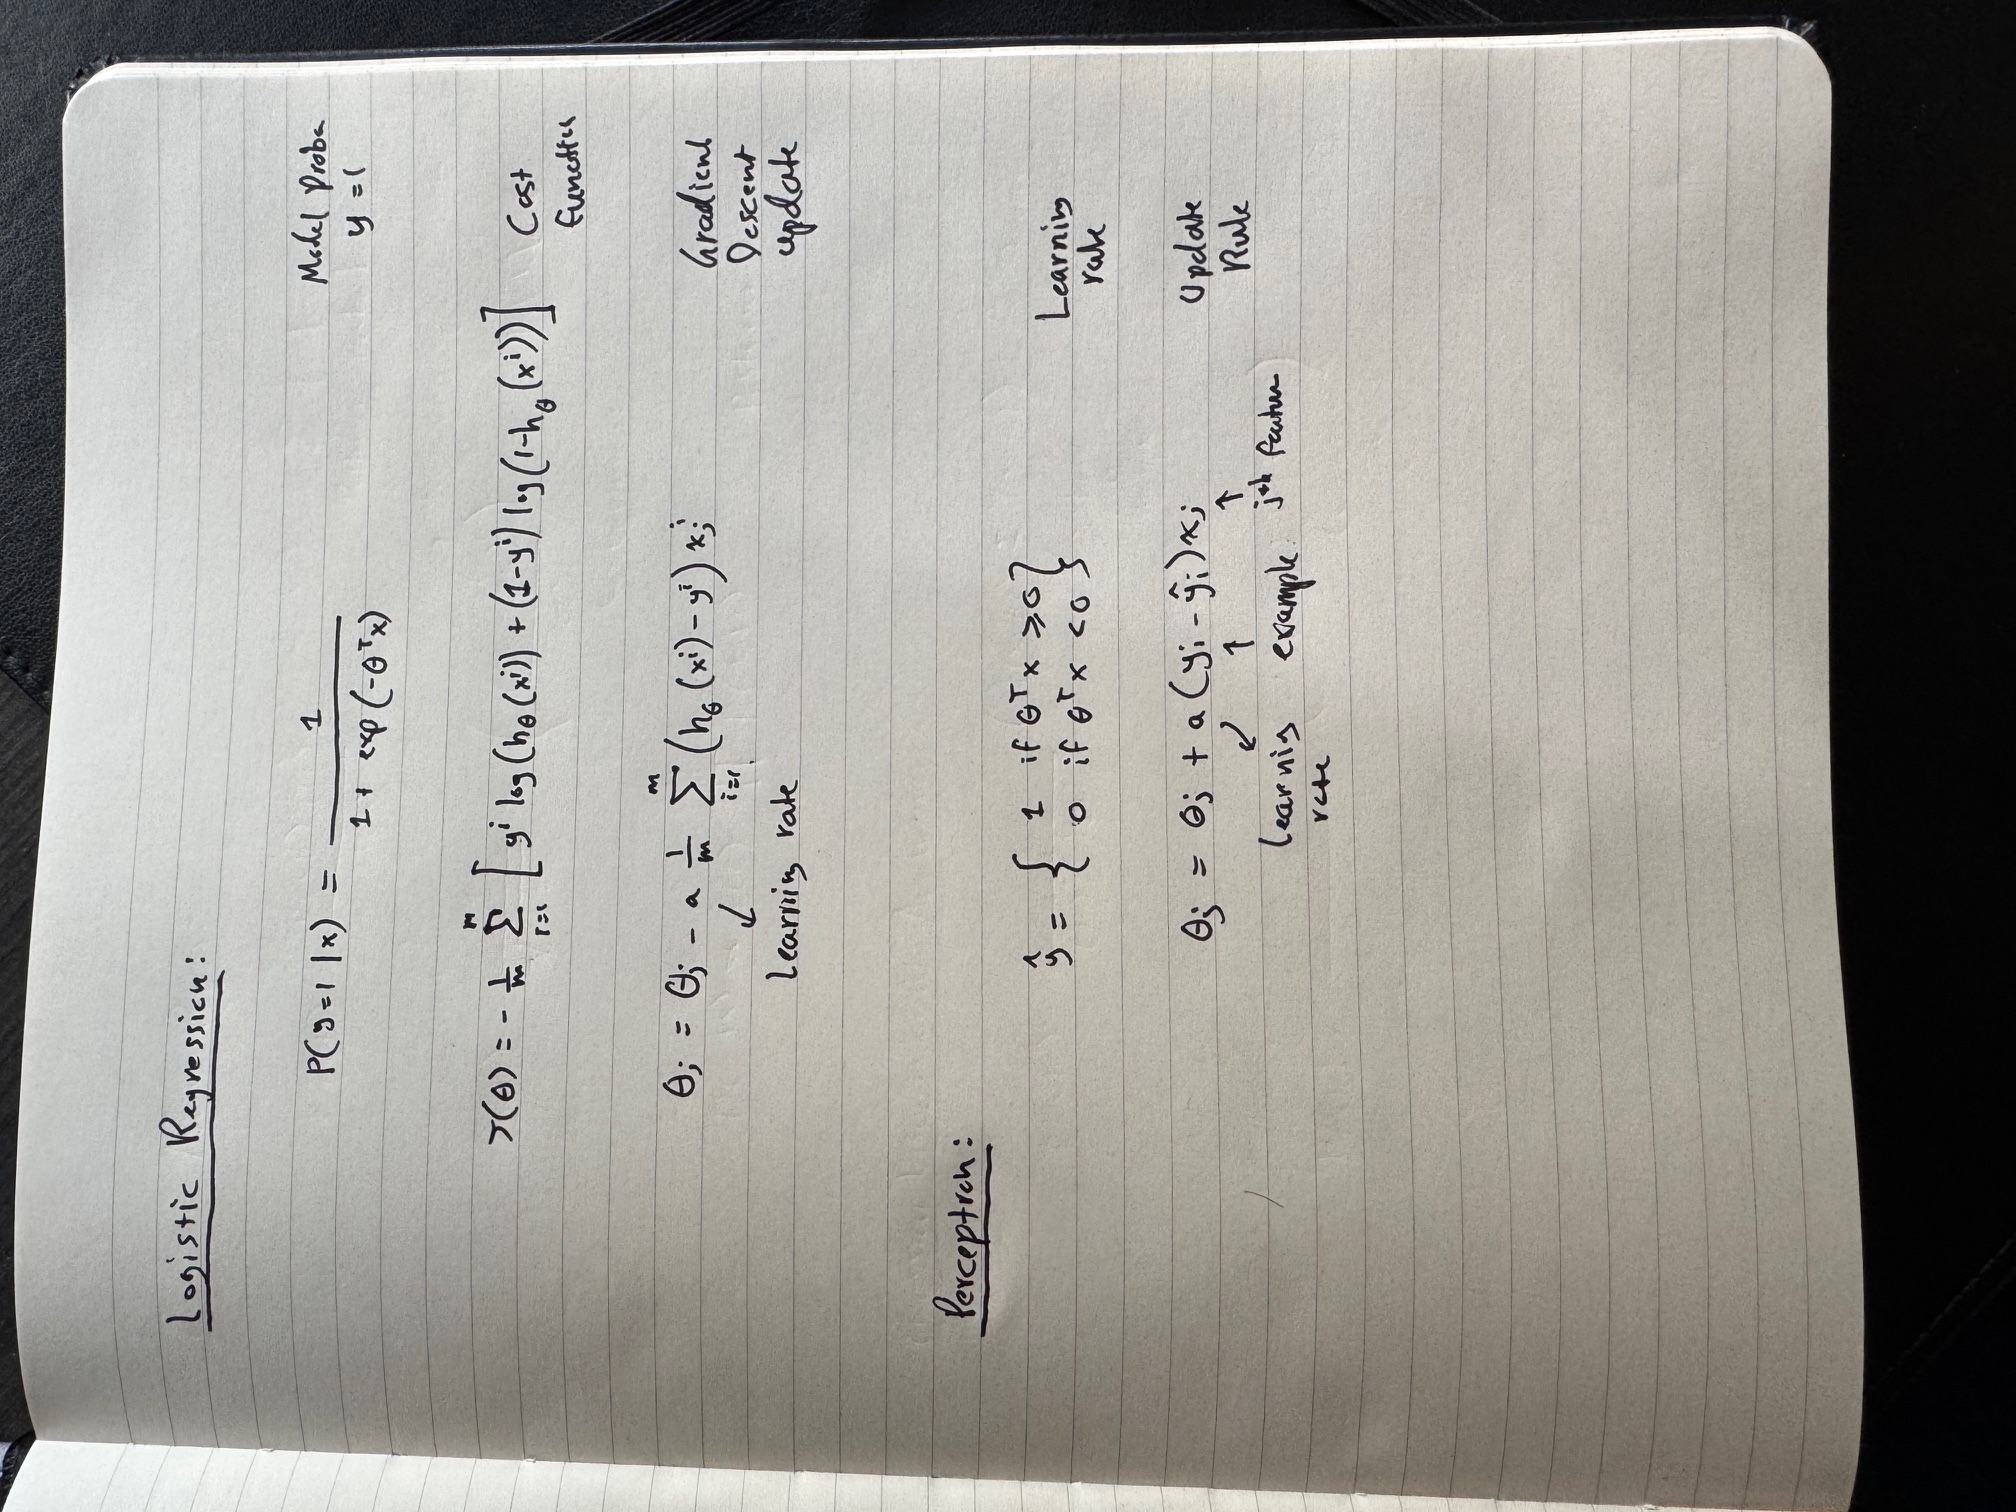 Logistic Regression:
P(y=1 | x) = 1 / (1 + exp(-θᵀx))
Model Proba
y = 1
J(θ) = - 1/m Σ_{i=1}^{m} [ yⁱ log(h_θ(xⁱ)) + (1-yⁱ) log(1-h_θ(xⁱ)) ]
Cost
Function
θ_j = θ_j - a 1/m Σ_{i=1}^{m} (h_θ(xⁱ) - yⁱ) x_jⁱ
Learning rate
Gradient
Descent
update
Perceptron:
ŷ = { 1 if θᵀx ≥ 0
0 if θᵀx < 0 }
Learning
rate
θ_j = θ_j + a (y_i - ŷ_i) x_j
Update
Rule
Learning
rate
example
jth feature